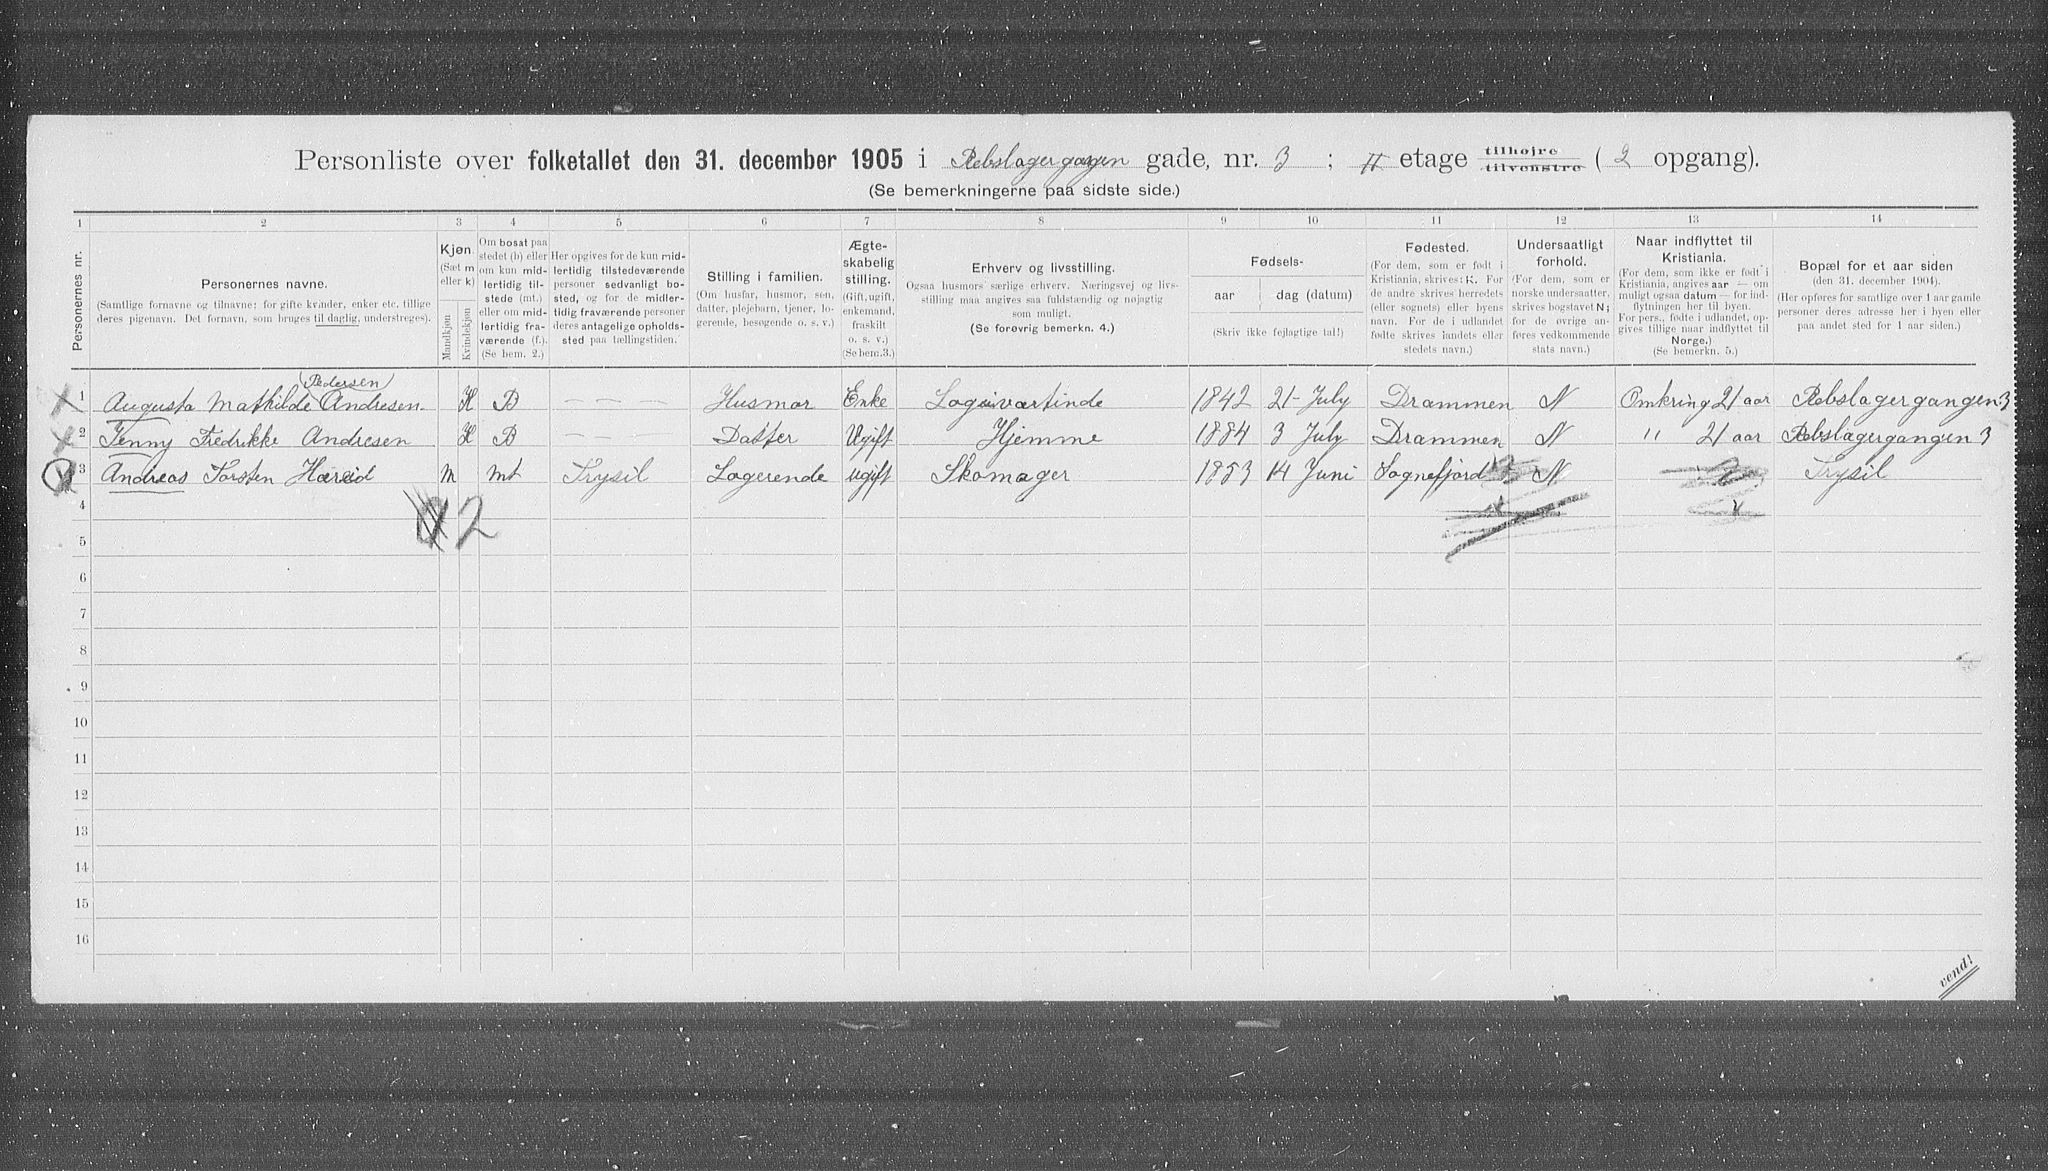 Personliste over folketallet den 31. december 1905 i Rebslagergangen gade, nr. 3 ; II etage tilhøjre tilvenstre ( 2 opgang).
(Se bemerkningerne paa sidste side.)
1 2 3 4 5 6 7 8 9 10 11 12 13 14
Personernes nr.
Personernes navne.
(Samtlige fornavne og tilnavne; for gifte kvinder, enker etc. tillige
deres pigenavn. Det fornavn, som bruges til daglig, understreges).
Kjøn.
(Sæt m
eller k)
Mandkjøn
Kvindekjøn
Om bosat paa
stedet (b) eller
om kun mid-
lertidig til-
stede (mt.)
eller om mid-
lertidig fra-
værende (f.).
(Se bem. 2.)
Her opgives for de kun mid-
lertidig tilstedeværende
personer sedvanligt bo-
sted, og for de midler-
tidig fraværende personer
deres antagelige opholds-
sted paa tællingstiden.
Stilling i familien.
(Om husfar, husmor, søn,
datter, plejebarn, tjener, lo-
gerende, besøgende o. s. v.)
Ægte-
skabelig
stilling.
(Gift, ugift,
enkemand,
fraskilt
o. s. v.)
(Se bem.3.)
Erhverv og livsstilling.
Ogsaa husmors særlige erhverv. Næringsvej og livs-
stilling maa angives saa fuldstændig og nøjagtig
som muligt.
(Se forøvrig bemerkn. 4.)
Fødsels-
aar
dag (datum)
(Skriv ikke fejlagtige tal!)
Fødested.
(For dem, som er født i
Kristiania, skrives: K. For
de andre skrives herredets
(eller sognets) eller byens
navn. For de i udlandet
fødte skrives landets eller
stedets navn.)
Undersaatligt
forhold.
(For dem, som er
norske undersaatter,
skrives bogstavet N;
for de øvrige an-
føres vedkommende
stats navn.)
Naar indflyttet til
Kristiania.
(For dem, som ikke er født i
Kristiania, angives aar — om
muligt ogsaa datum — for ind-
flytningen her til byen.
For pers., fødte i udlandet, op-
gives tillige naar indflyttet til
Norge.)
(Se bemerkn. 5.)
Bopæl for et aar siden
(den 31. december 1904).
(Her opføres for samtlige over 1 aar gamle
personer deres adresse her i byen eller
paa andet sted for 1 aar siden.)
(Pedersen)
1 Augusta Mathilde Andresen. K B — — — Husmor Enke Logiværtinde 1842 21 July Drammen N Omkring 21 aar Rebslagergangen 3
2 Jenny Fredrikke Andresen K B — — — Datter Ugift Hjemme 1884 3 July Drammen N " 21 aar Rebslagergangen 3
3 Andreas Torsten m mt Trysil Logerende ugift Skomager 1853 14 Juni Sognefjord N Trysil
4
2
5
6
7
8
9
10
11
12
13
14
15
16
vend!